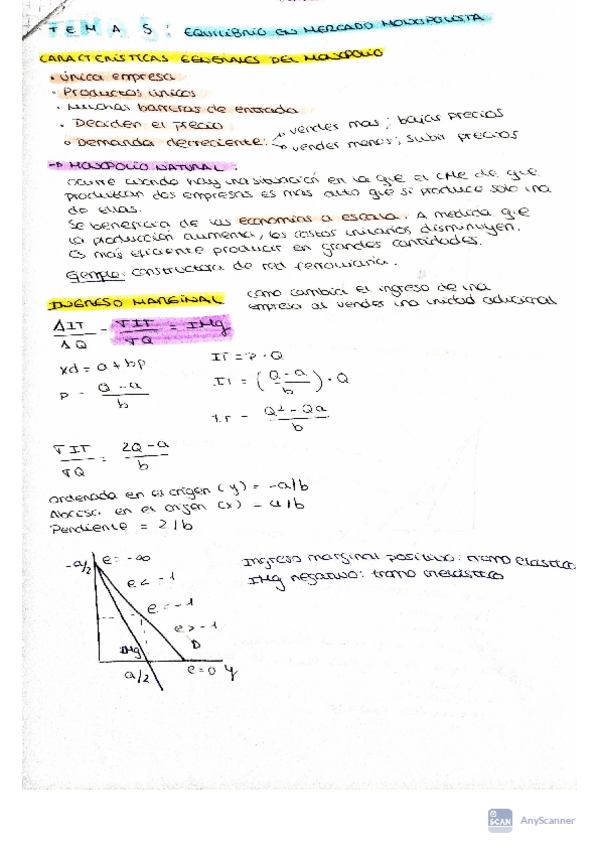 TEMA 5: EQUILIBRIO EN MERCADO MONOPOLISTA
CARACTERÍSTICAS GENERALES DEL MONOPOLIO
• única empresa
• Productos únicos
• Muchas barreras de entrada
• Deciden el precio
• Demanda decreciente: vender mas; bajar precios
vender menos; subir precios
→ MONOPOLIO NATURAL:
ocurre cuando hay una situación en la que el CMe de que
produzcan dos empresas es mas alto que si produce solo una
de ellas.
Se beneficia de las economías a escala. A medida que
la producción aumenta, los costos unitarios disminuyen.
Es más eficiente producir en grandes cantidades.
Ejemplo: constructora de red ferroviaria.
INGRESO MARGINAL como cambia el ingreso de una
empresa al vender una unidad adicional
ΔIT/ΔQ = ∇IT/∇Q = IMg
xd = a + bp
IT = P · Q
P = Q - a / b
IT = (Q - a / b) · Q
IT = Q² - Qa / b
∇IT/∇Q = 2Q - a / b
ordenada en el origen (y) = -a/b
Abscisa en el origen (x) = a/b
Pendiente = 2/b
-a/2 e = -∞
e < -1
e = -1
e > -1
D
IMg
a/2 e=0 y
Ingreso marginal positivo: tramo elástico
IMg negativo: tramo inelástico
SCAN AnyScanner